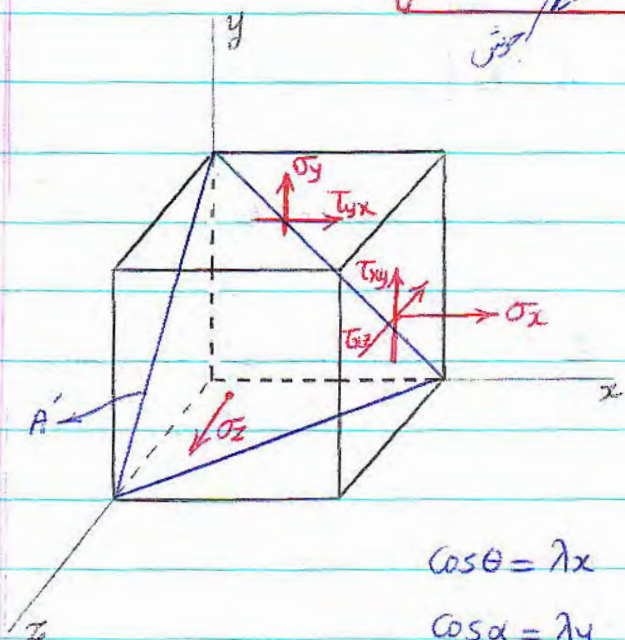 جوش
y
σy
τyx
τxy
σx
τxz
x
A'
σz
Cosθ = λx
Cosα = λy
z